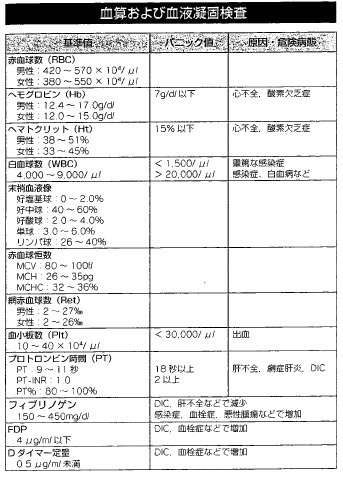 血算および血液凝固検査
基準値 パニック値 原因・危険病態
赤血球数 (RBC)
男性：420～570×10⁴/μl
女性：380～550×10⁴/μl
ヘモグロビン (Hb) 7g/dl以下 心不全，酸素欠乏症
男性：12.4～17.0g/dl
女性：12.0～15.0g/dl
ヘマトクリット (Ht) 15％以下 心不全，酸素欠乏症
男性：38～51％
女性：33～45％
白血球数 (WBC) ＜1,500/μl 重篤な感染症
4,000～9,000/μl ＞20,000/μl 感染症，白血病など
末梢血液像
好塩基球：0～2.0％
好中球：40～60％
好酸球：2.0～4.0％
単球：3.0～6.0％
リンパ球：26～40％
赤血球恒数
MCV：80～100fl
MCH：26～35pg
MCHC：32～36％
網赤血球数 (Ret)
男性：2～27‰
女性：2～26‰
血小板数 (Plt) ＜30,000/μl 出血
10～40×10⁴/μl
プロトロンビン時間 (PT)
PT：9～11秒 18秒以上 肝不全，劇症肝炎，DIC
PT-INR：1.0 2以上
PT%：80～100％
フィブリノゲン DIC，肝不全などで減少
150～450mg/dl 感染症，血栓症，悪性腫瘍などで増加
FDP DIC，血栓症などで増加
4μg/ml以下
Dダイマー定量 DIC，血栓症などで増加
0.5μg/ml未満